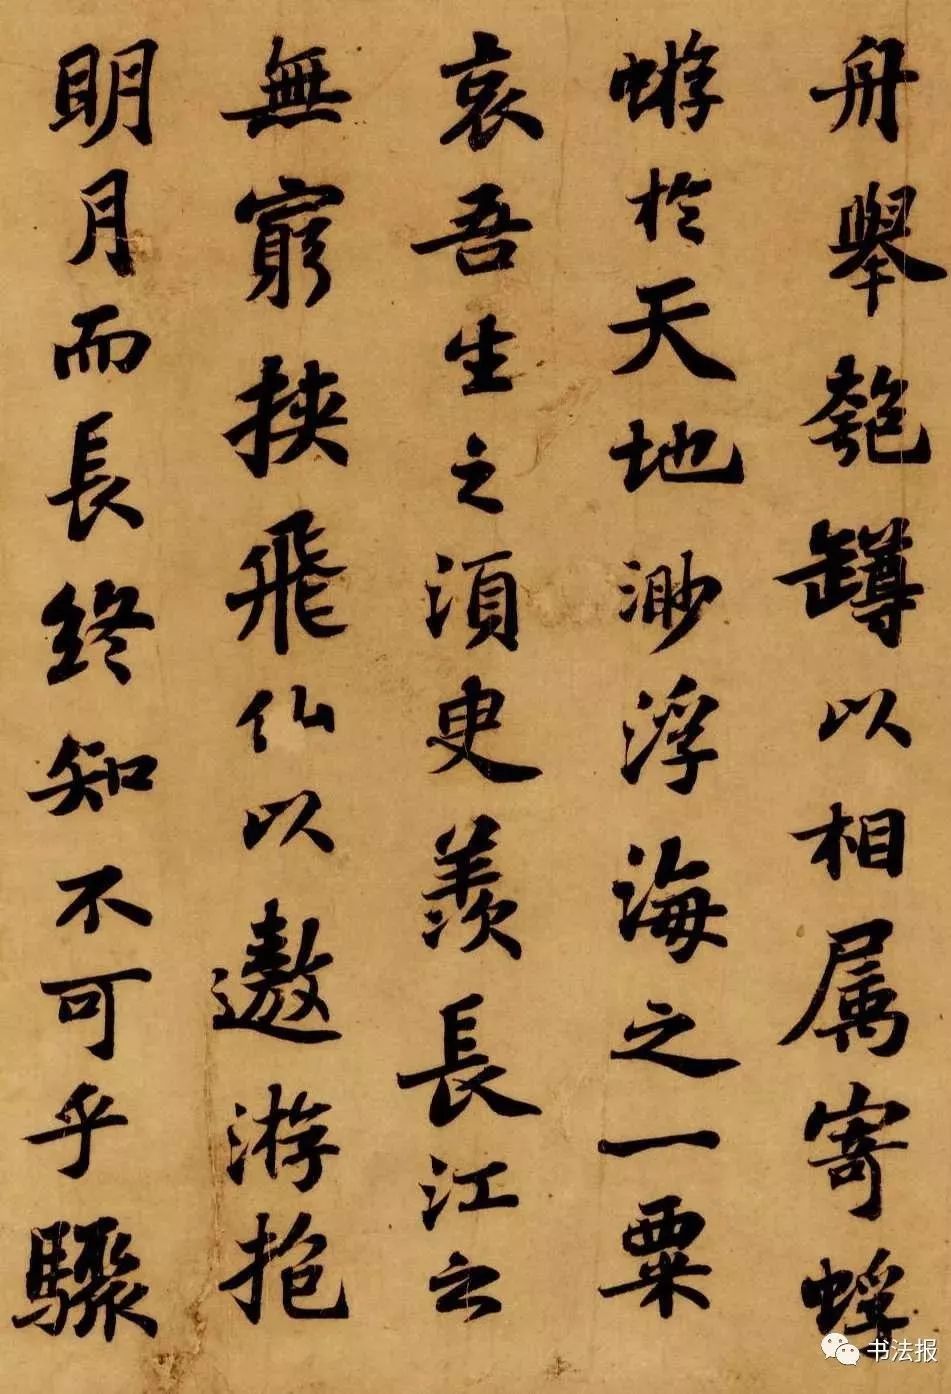 舟舉匏罇以相属寄蜉
蝣於天地渺浮海之一粟
哀吾生之須臾羨長江之
無窮挾飛仙以遨游抱
明月而長終知不可乎驟
书法报